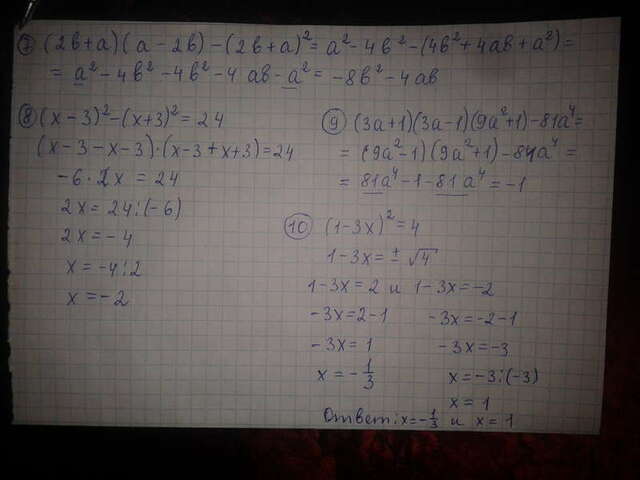 ⑦ (2в+a)(a-2в)-(2в+a)²=a²-4в²-(4в²+4aв+a²)=
=a²-4в²-4в²-4aв-a²=-8в²-4aв
⑧ (x-3)²-(x+3)²=24
(x-3-x-3)·(x-3+x+3)=24
-6·2x=24
2x=24:(-6)
2x=-4
x=-4:2
x=-2
⑨ (3a+1)(3a-1)(9a²+1)-81a⁴=
=(9a²-1)(9a²+1)-81a⁴=
=81a⁴-1-81a⁴=-1
⑩ (1-3x)²=4
1-3x=±√4
1-3x=2 и 1-3x=-2
-3x=2-1 -3x=-2-1
-3x=1 -3x=-3
x=-1/3 x=-3:(-3)
x=1
Ответ: x=-1/3 и x=1